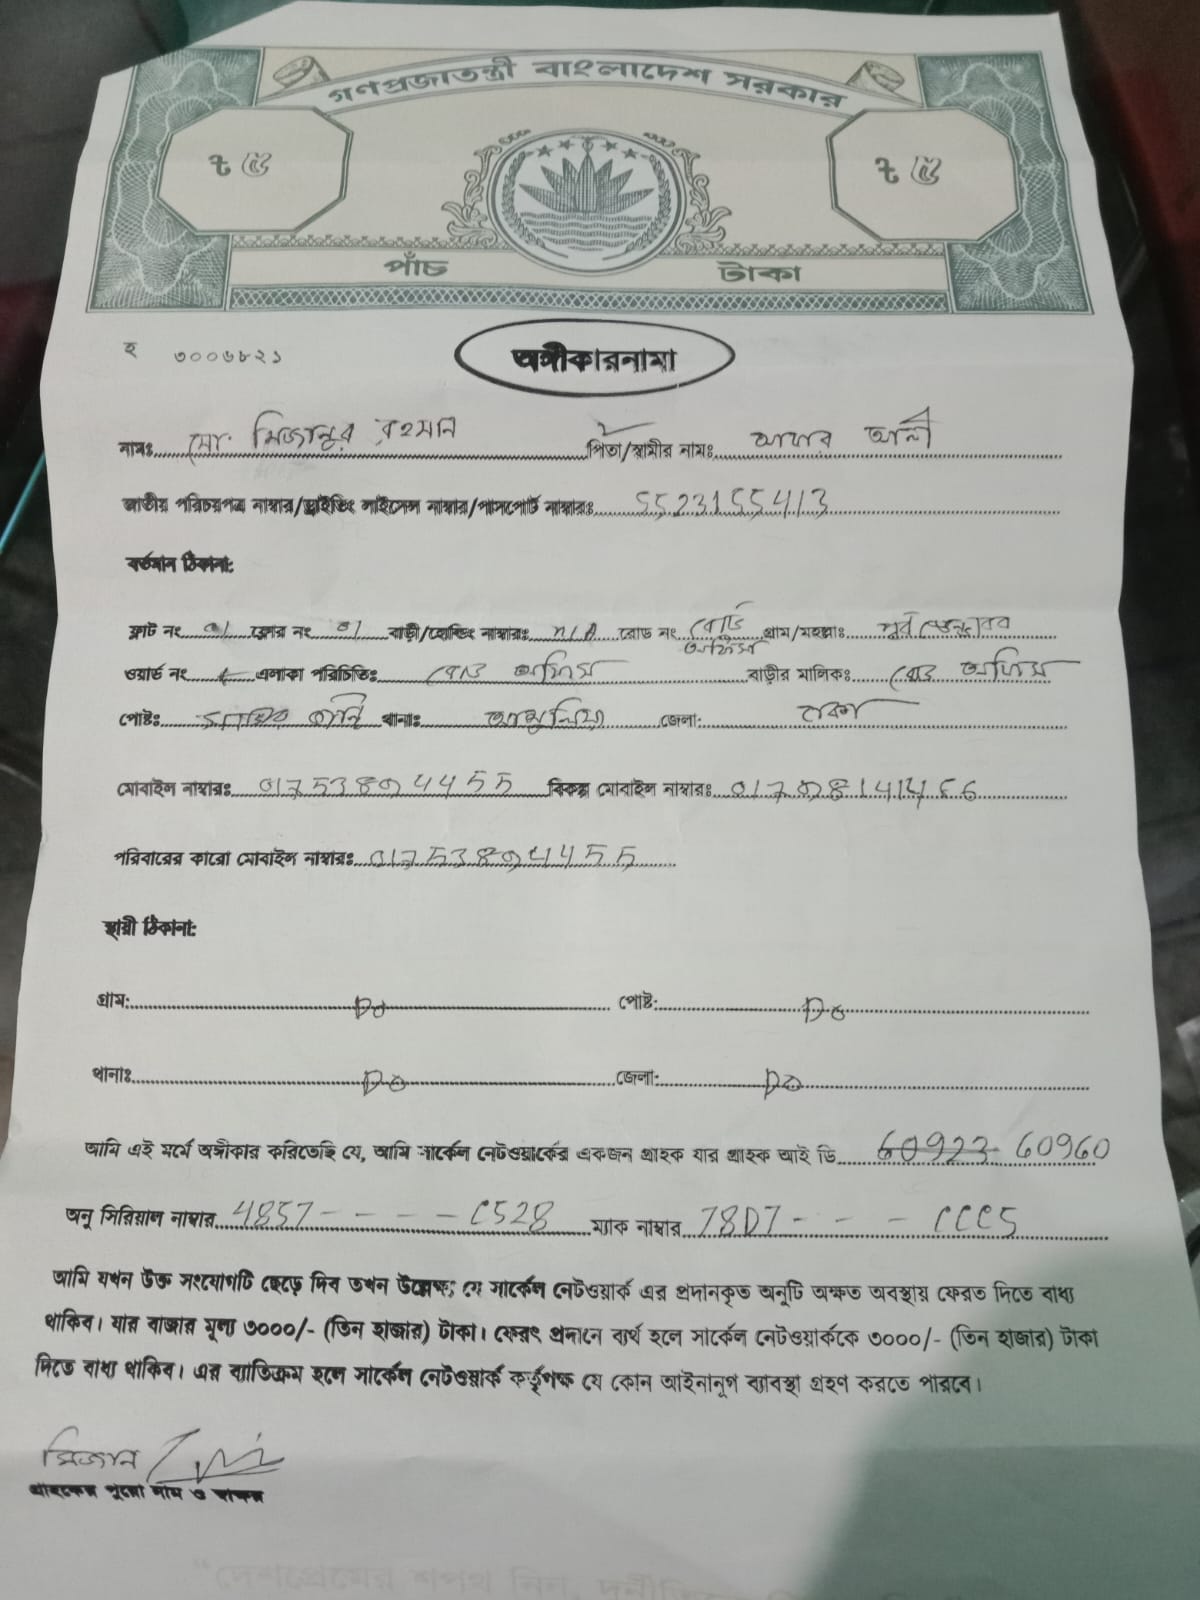 গণপ্রজাতন্ত্রী বাংলাদেশ সরকার
৳ ৫ ৳ ৫
পাঁচ টাকা
হ ৩০০৬৮২১
অঙ্গীকারনামা
নামঃ মো. মিজানুর রহমান পিতা/স্বামীর নামঃ আলী
জাতীয় পরিচয়পত্র নাম্বার/ড্রাইভিং লাইসেন্স নাম্বার/পাসপোর্ট নাম্বারঃ 5523155413
বর্তমান ঠিকানা:
ফ্লাট নং ফ্লোর নং বাড়ী/হোল্ডিং নাম্বারঃ N/A রোড নং বোর্ড অফিস গ্রাম/মহল্লাঃ পূর্ব
ওয়ার্ড নং এলাকা পরিচিতিঃ বোর্ড অফিস বাড়ীর মালিকঃ বোর্ড অফিস
পোষ্টঃ থানাঃ আশুলিয়া জেলা: ঢাকা
মোবাইল নাম্বারঃ বিকল্প মোবাইল নাম্বারঃ
পরিবারের কারো মোবাইল নাম্বারঃ
স্থায়ী ঠিকানা:
গ্রাম: Do পোষ্ট: Do
থানাঃ Do জেলা: Do
আমি এই মর্মে অঙ্গীকার করিতেছি যে, আমি সার্কেল নেটওয়ার্কের একজন গ্রাহক যার গ্রাহক আই ডি 60923 60960
অনু সিরিয়াল নাম্বার 4857 - - - - C528 ম্যাক নাম্বার 78D7 - - - CCC5
আমি যখন উক্ত সংযোগটি ছেড়ে দিব তখন উল্লেক্ষ যে সার্কেল নেটওয়ার্ক এর প্রদানকৃত অনুটি অক্ষত অবস্থায় ফেরত দিতে বাধ্য
থাকিব। যার বাজার মূল্য ৩০০০/- (তিন হাজার) টাকা। ফেরৎ প্রদানে ব্যর্থ হলে সার্কেল নেটওয়ার্ককে ৩০০০/- (তিন হাজার) টাকা
দিতে বাধ্য থাকিব। এর ব্যাতিক্রম হলে সার্কেল নেটওয়ার্ক কর্তৃপক্ষ যে কোন আইনানূগ ব্যাবস্থা গ্রহণ করতে পারবে।
মিজান
গ্রাহকের পুরো নাম ও স্বাক্ষর
"দেশপ্রেমের শপথ নিন,